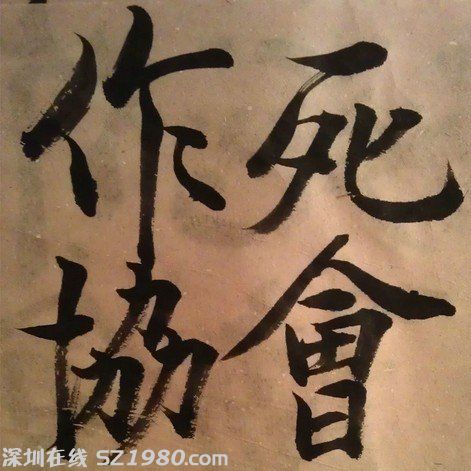 作死
協會
深圳在线 SZ1980.com